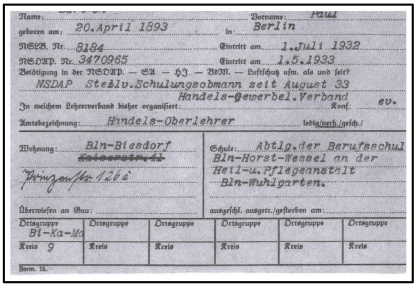 Name: Vorname: Paul
geboren am: 20.April 1893 in: Berlin
NSLB. Nr. 8184 Eintritt am 1.Juli 1932
NSDAP. Nr. 3470965 Eintritt am 1.5.1933
Betätigung in der NSDAP. — SA — HJ — BdM. — Luftschutz usw. als und seit?
NSDAP Stellv.Schulungsobmann seit August 33
Handels-Gewerbel.Verband
In welchem Lehrerverband bisher organisiert: Konf. ev.
Amtsbezeichnung: Handels-Oberlehrer ledig/verh./gesch./
Wohnung: Bln-Biesdorf
Kaiserstr.41
Prinzenstr 126a
Schule: Abtlg.der Berufsschul
Bln-Horst-Wessel an der
Heil-u.Pflegeanstalt
Bln-Wuhlgarten.
Überwiesen an Gau: ausgeschl. ausgetr./gestorben am:
Ortsgruppe Ortsgruppe Ortsgruppe Ortsgruppe Ortsgruppe Ortsgruppe
Bi-Ka-Ma
Kreis 9 Kreis Kreis Kreis Kreis Kreis
Form. 1a.